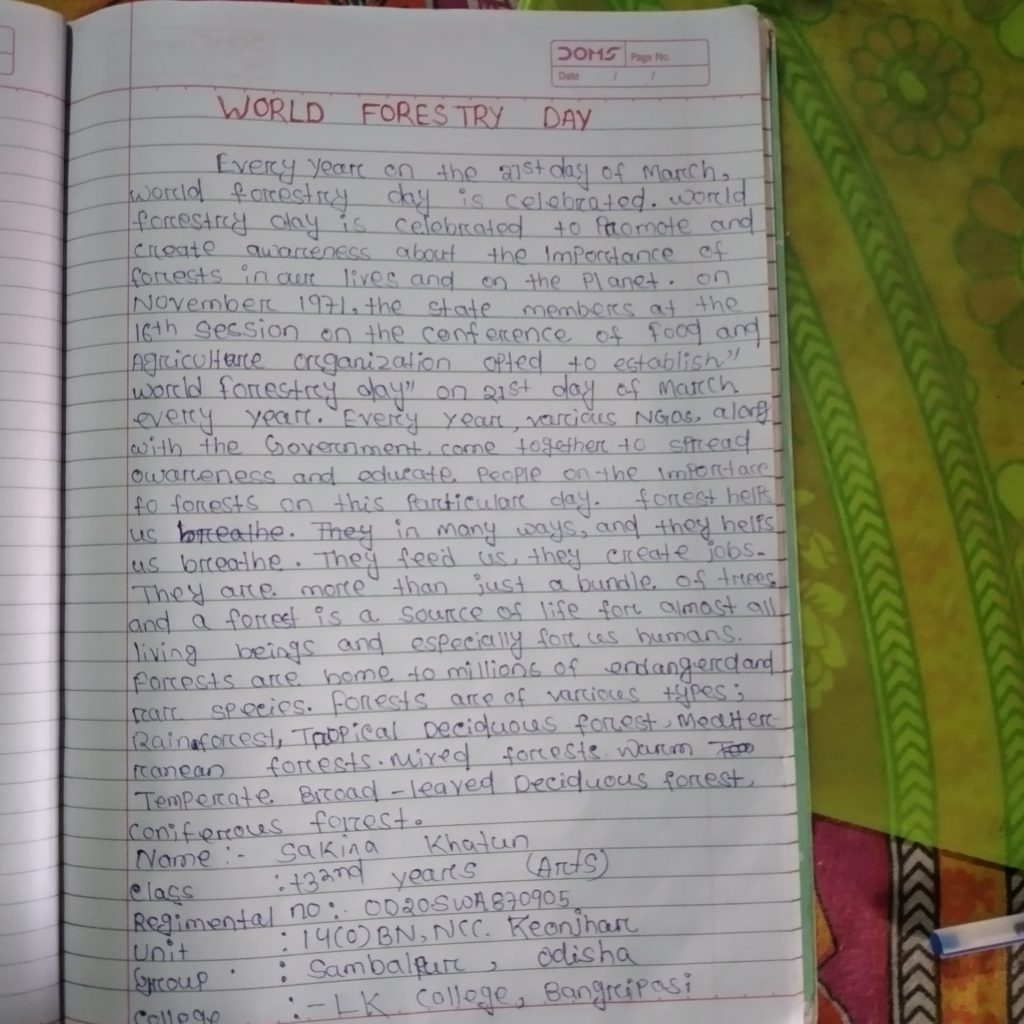 DOMS Page No.
Date / /
WORLD FORESTRY DAY
Every year on the 21st day of March,
world forestry day is celebrated. world
forestry day is celebrated to Promote and
create awareness about the Importance of
forests in our lives and on the Planet. on
November 1971, the state members at the
16th session on the conference of food and
Agriculture organization opted to establish"
world forrestry day" on 21st day of march
every year. Every year, various NGOs, along
with the Government, come together to spread
awareness and educate. People on the Importace
to forests on this Particular day. forrest helPs
us breathe. They in many ways, and they helPs
us breathe. They feed us, they create jobs.
They are more than just a bundle. of trees
and a forrest is a source of life for almost all
living beings and especially for us humans.
Forrests are home to millions of endangerd and
rare species. Forests are of various types;
Rainforest, Tropical Deciduous forrest, Mediter
ranean forrests. Mixed forrests. Warm
Temperate Broad-leaved Deciduous forrest,
Coniferrous forrest.
Name :- Sakina Khatun
Class : +3 2nd years (Arts)
Regimental no :. OD20SWA870905.
Unit : 14(O) BN, NCC. Keonjhar
Group : Sambalpur, Odisha
College :- LK College, Bangripasi